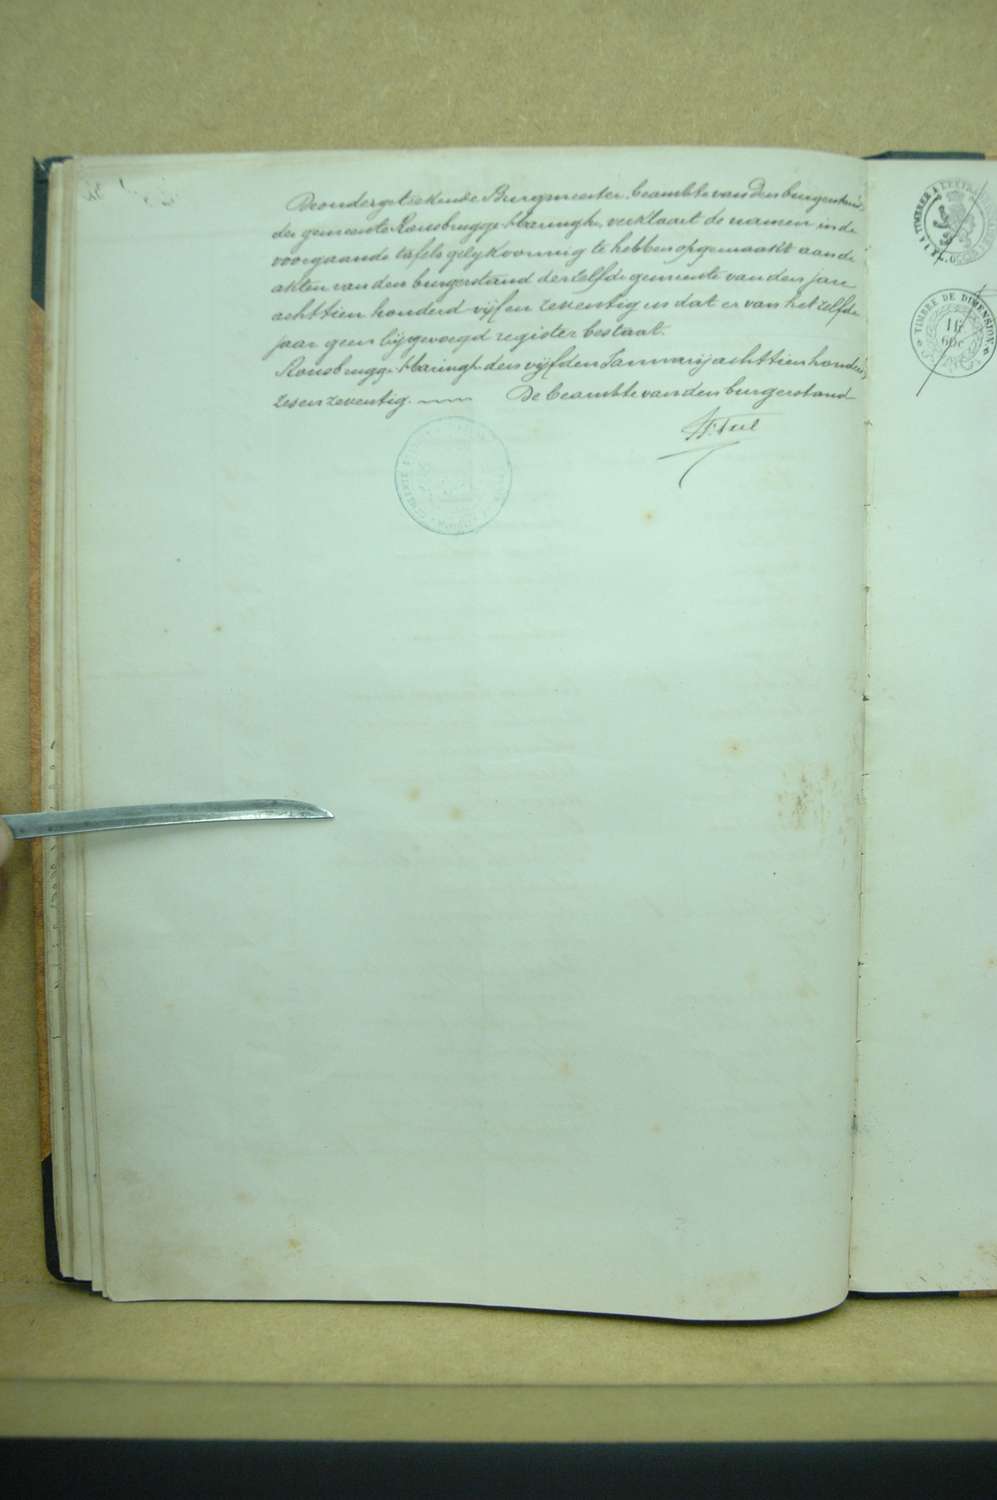 De ondergeteekende Burgmeester, beambte van den burgerstand,
der gemeente Rousbrugge-Haringhe, verklaart de namen in de
voorgaande tafels gelykvormig te hebben opgemaakt aan de
akten van den burgerstand derzelfde gemeente van den jare
achttien honderd vijf en zeventig en dat er van het zelfde
jaar geen bijgevoegd register bestaat.
Rousbrugge-Haringhe den vijfden Januarij achttien honderd
zes en zeventig. De beambte van den burgerstand
TIMBRE DE DIMENSION